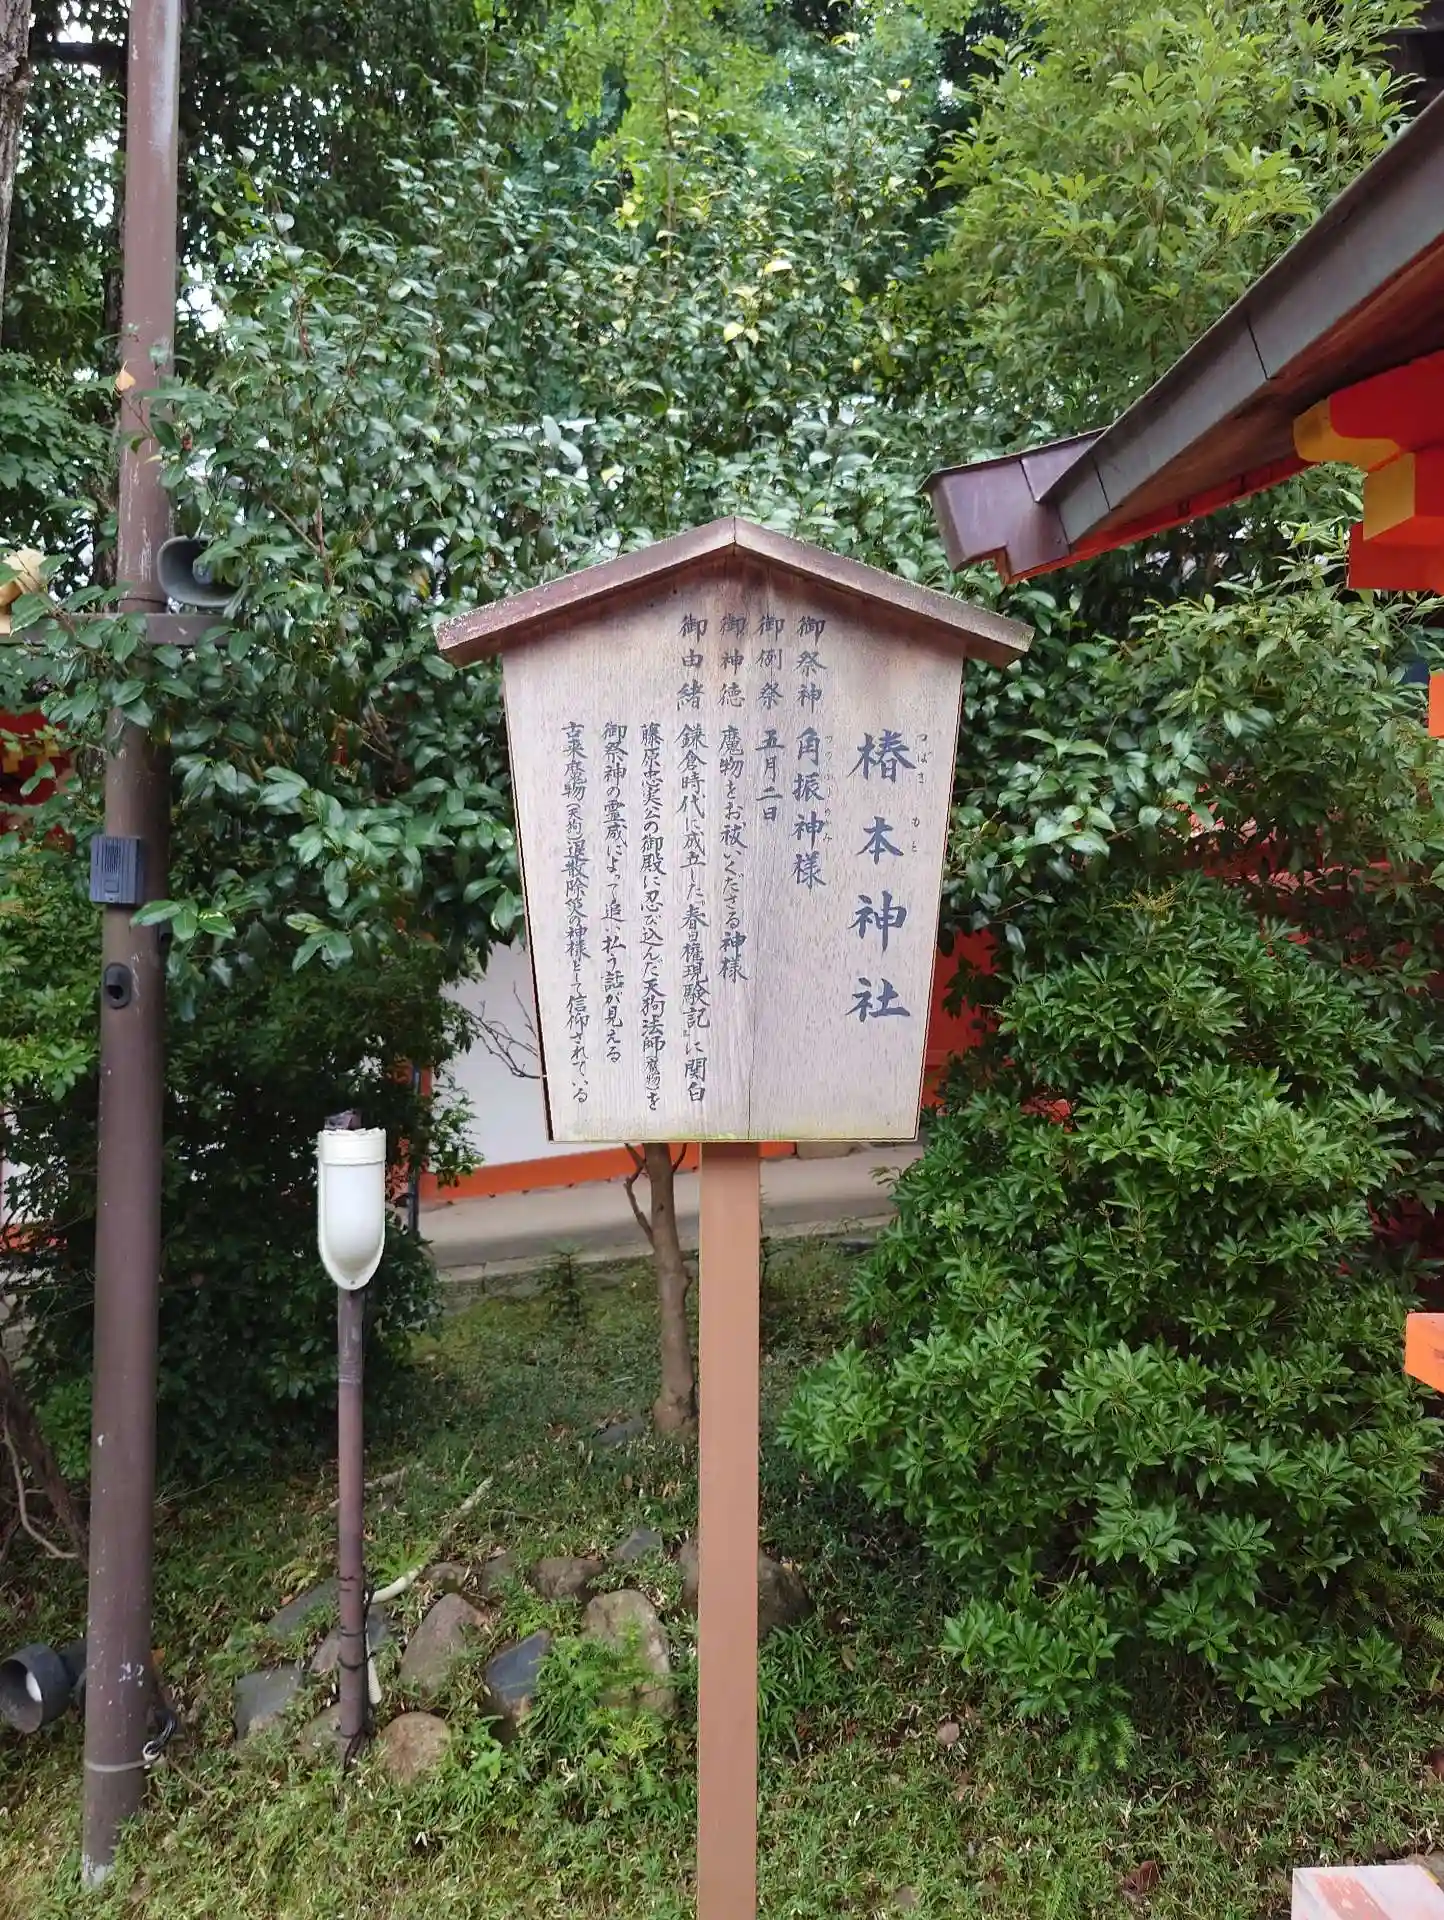 椿本神社
つばき もと
御祭神 角振神様
つのふりのかみ
御例祭 五月二日
御神徳 魔物をお祓いくださる神様
御由緒 鎌倉時代に成立した『春日権現験記』に関白
藤原忠実公の御殿に忍び込んだ天狗法師(魔物)を
御祭神の霊威によって追い払う話が見える
古来魔物(天狗)退散除災の神様として信仰されている